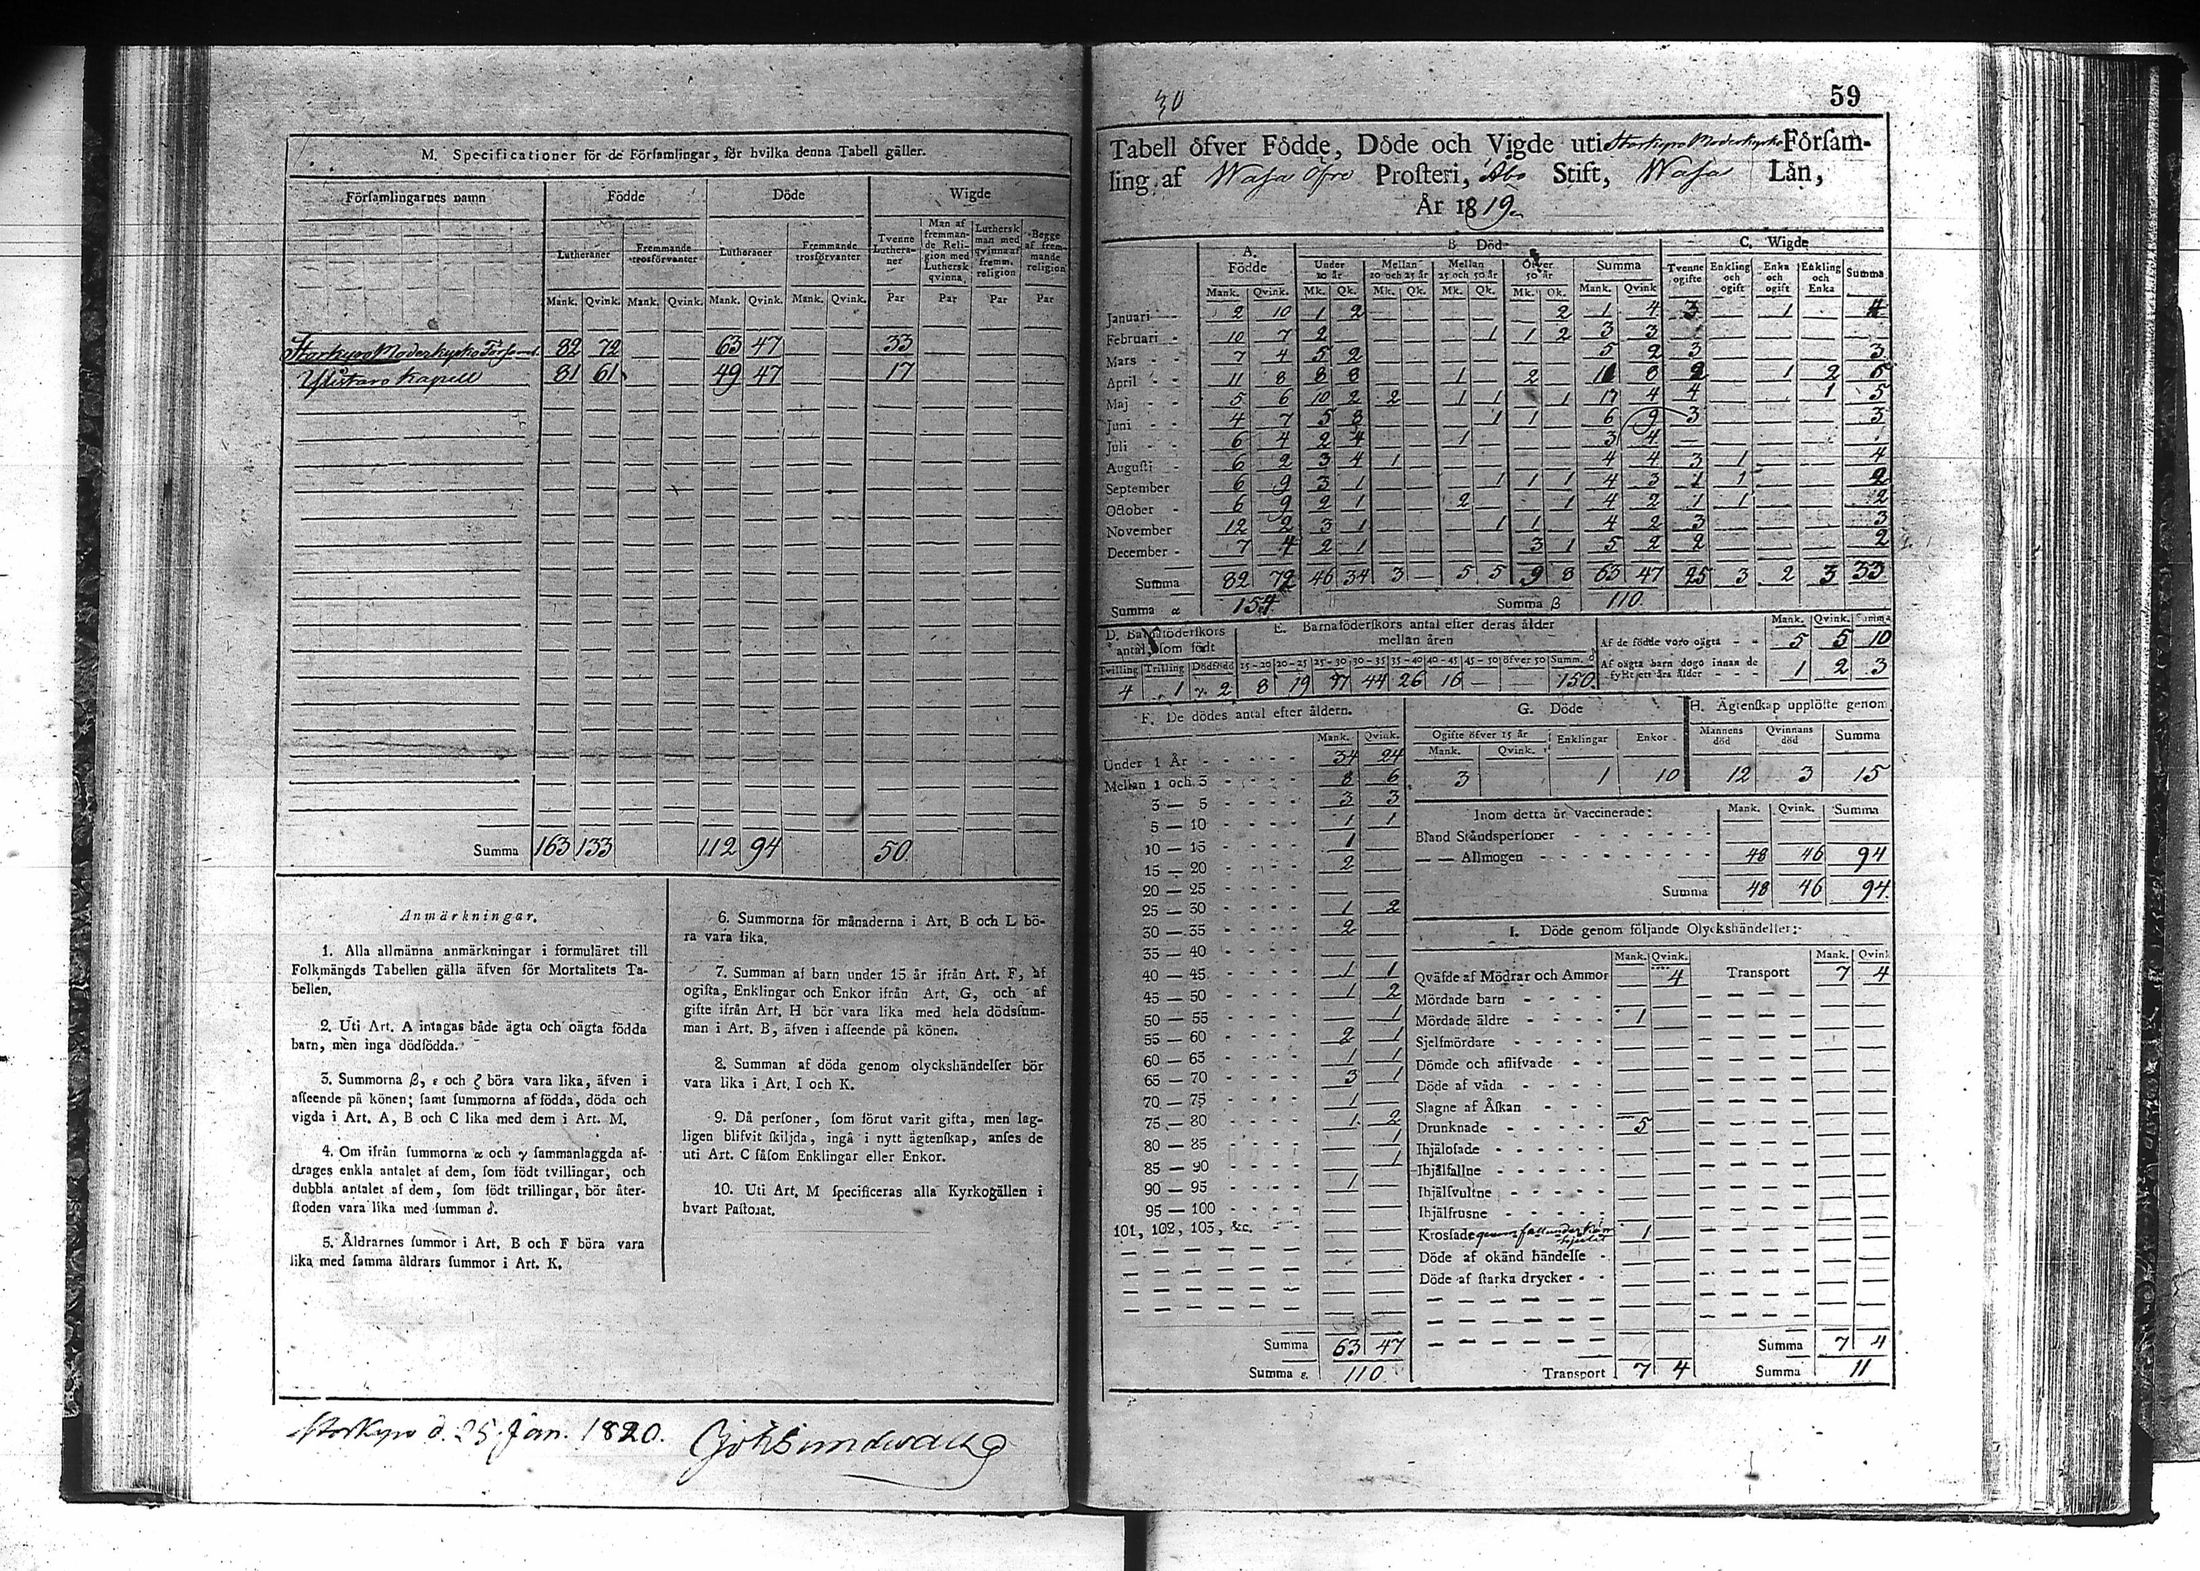 M. Specificationer för de Församlingar, för hvilka denna Tabell gäller.
Församlingarnes namn Födde Döde Wigde
Lutheraner Fremmande trosförvanter Lutheraner Fremmande trosförvanter Tvenne Lutheraner Man af fremmande Religion med Luthersk qvinna. Luthersk man med qvinna af fremm. religion Begge af fremmande religion
Mank. Qvink. Mank. Qvink. Mank. Qvink. Mank. Qvink. Par Par Par Par
Storkyro Moderkyrko Församl. 82 72 63 47 33
Ylistaro Kapell 81 61 49 47 17
Summa 163 133 112 94 50
Anmärkningar.
1. Alla allmänna anmärkningar i formuläret till
Folkmängds Tabellen gälla äfven för Mortalitets Ta-
bellen.
2. Uti Art. A intagas både ägta och oägta födda
barn, men inga dödfödda.
3. Summorna β, ε och ζ böra vara lika, äfven i
afseende på könen; samt summorna af födda, döda och
vigda i Art. A, B och C lika med dem i Art. M.
4. Om ifrån summorna α och γ sammanlaggda af-
drages enkla antalet af dem, som födt tvillingar, och
dubbla antalet af dem, som födt trillingar, bör åter-
stoden vara lika med summan δ.
5. Åldrarnes summor i Art. B och F böra vara
lika med samma åldrars summor i Art. K.
6. Summorna för månaderna i Art. B och L bö-
ra vara lika.
7. Summan af barn under 15 år ifrån Art. F, af
ogifta, Enklingar och Enkor ifrån Art. G, och af
gifte ifrån Art. H bör vara lika med hela dödssum-
man i Art. B, äfven i afseende på könen.
8. Summan af döda genom olyckshändelser bör
vara lika i Art. I och K.
9. Då personer, som förut varit gifta, men lag-
ligen blifvit skiljda, ingå i nytt ägtenskap, anses de
uti Art. C såsom Enklingar eller Enkor.
10. Uti Art. M specificeras alla Kyrkogällen i
hvart Pastorat.
Storkyro d. 25 Jan. 1820.
30
59
Tabell öfver Födde, Döde och Vigde uti Storkyro Moderkyrko Försam-
ling af Wasa Öfre Prosteri, Åbo Stift, Wasa Län,
År 1819
A. Födde B. Död C. Wigde
Under 10 år Mellan 10 och 25 år Mellan 25 och 50 år Öfver 50 år Summa Tvenne ogifte Enkling och ogift Enka och ogift Enkling och Enka Summa
Mank. Qvink. Mk. Qk. Mk. Qk. Mk. Qk. Mk. Qk. Mank. Qvink
Januari 2 10 1 2 2 1 4 3 1 4
Februari 10 7 2 1 1 2 3 3
Mars 7 4 5 2 5 2 3 3
April 11 8 8 8 1 2 11 8 2 1 2 5
Maj 5 6 10 2 2 1 1 1 17 4 4 1 5
Juni 4 7 5 8 1 1 6 9 3 3
Juli 6 4 2 4 1 3 4
Augusti 6 2 3 4 1 4 4 3 1 4
September 6 9 3 1 1 1 1 4 3 1 1 2
October 6 9 2 1 2 1 4 2 1 1 2
November 12 2 3 1 1 1 4 2 3 3
December 7 4 2 1 3 1 5 2 2 2
Summa 82 72 46 34 3 5 5 9 8 63 47 25 3 2 3 33
Summa α 154 Summa β 110
D. Barnaföderskors antal, som födt
Tvilling Trilling Dödfödd
4 1 γ 2
E. Barnaföderskors antal efter deras ålder mellan åren
15-20 20-25 25-30 30-35 35-40 40-45 45-50 öfver 50 Summ. δ
8 19 37 44 26 16 150
Mank. Qvink. Summa
Af de födde voro oägta 5 5 10
Af oägta barn dogo innan de fyllt ett års ålder 1 2 3
F. De dödes antal efter åldern.
Mank. Qvink.
Under 1 År 34 24
Mellan 1 och 3 8 6
3 — 5 3 3
5 — 10 1 1
10 — 15 1
15 — 20 2
20 — 25
25 — 30 1 2
30 — 35 2
35 — 40
40 — 45 1 1
45 — 50 1 2
50 — 55 1
55 — 60 2 1
60 — 65 1 1
65 — 70 3 1
70 — 75 1
75 — 80 1 2
80 — 85 1
85 — 90 1
90 — 95 1
95 — 100
101, 102, 103, &c.
Summa 63 47
Summa ε. 110
G. Döde
Ogifte öfver 15 år Enklingar Enkor
Mank. Qvink.
3 1 10
H. Ägtenskap upplöste genom
Mannens död Qvinnans död Summa
12 3 15
Inom detta år vaccinerade: Mank. Qvink. Summa
Bland Ståndspersoner
— — Allmogen 48 46 94
Summa 48 46 94
I. Döde genom följande Olyckshändelser:
Mank. Qvink. Mank. Qvink
Qväfde af Mödrar och Ammor 4 Transport 7 4
Mördade barn
Mördade äldre 1
Sjelfmördare
Dömde och aflifvade
Döde af våda
Slagne af Åskan
Drunknade 5
Ihjälosade
Ihjälfallne
Ihjälsvultne
Ihjälfrusne
Krossade genom fall under 1
Döde af okänd händelse
Döde af starka drycker
Summa 7 4
Transport 7 4 Summa 11